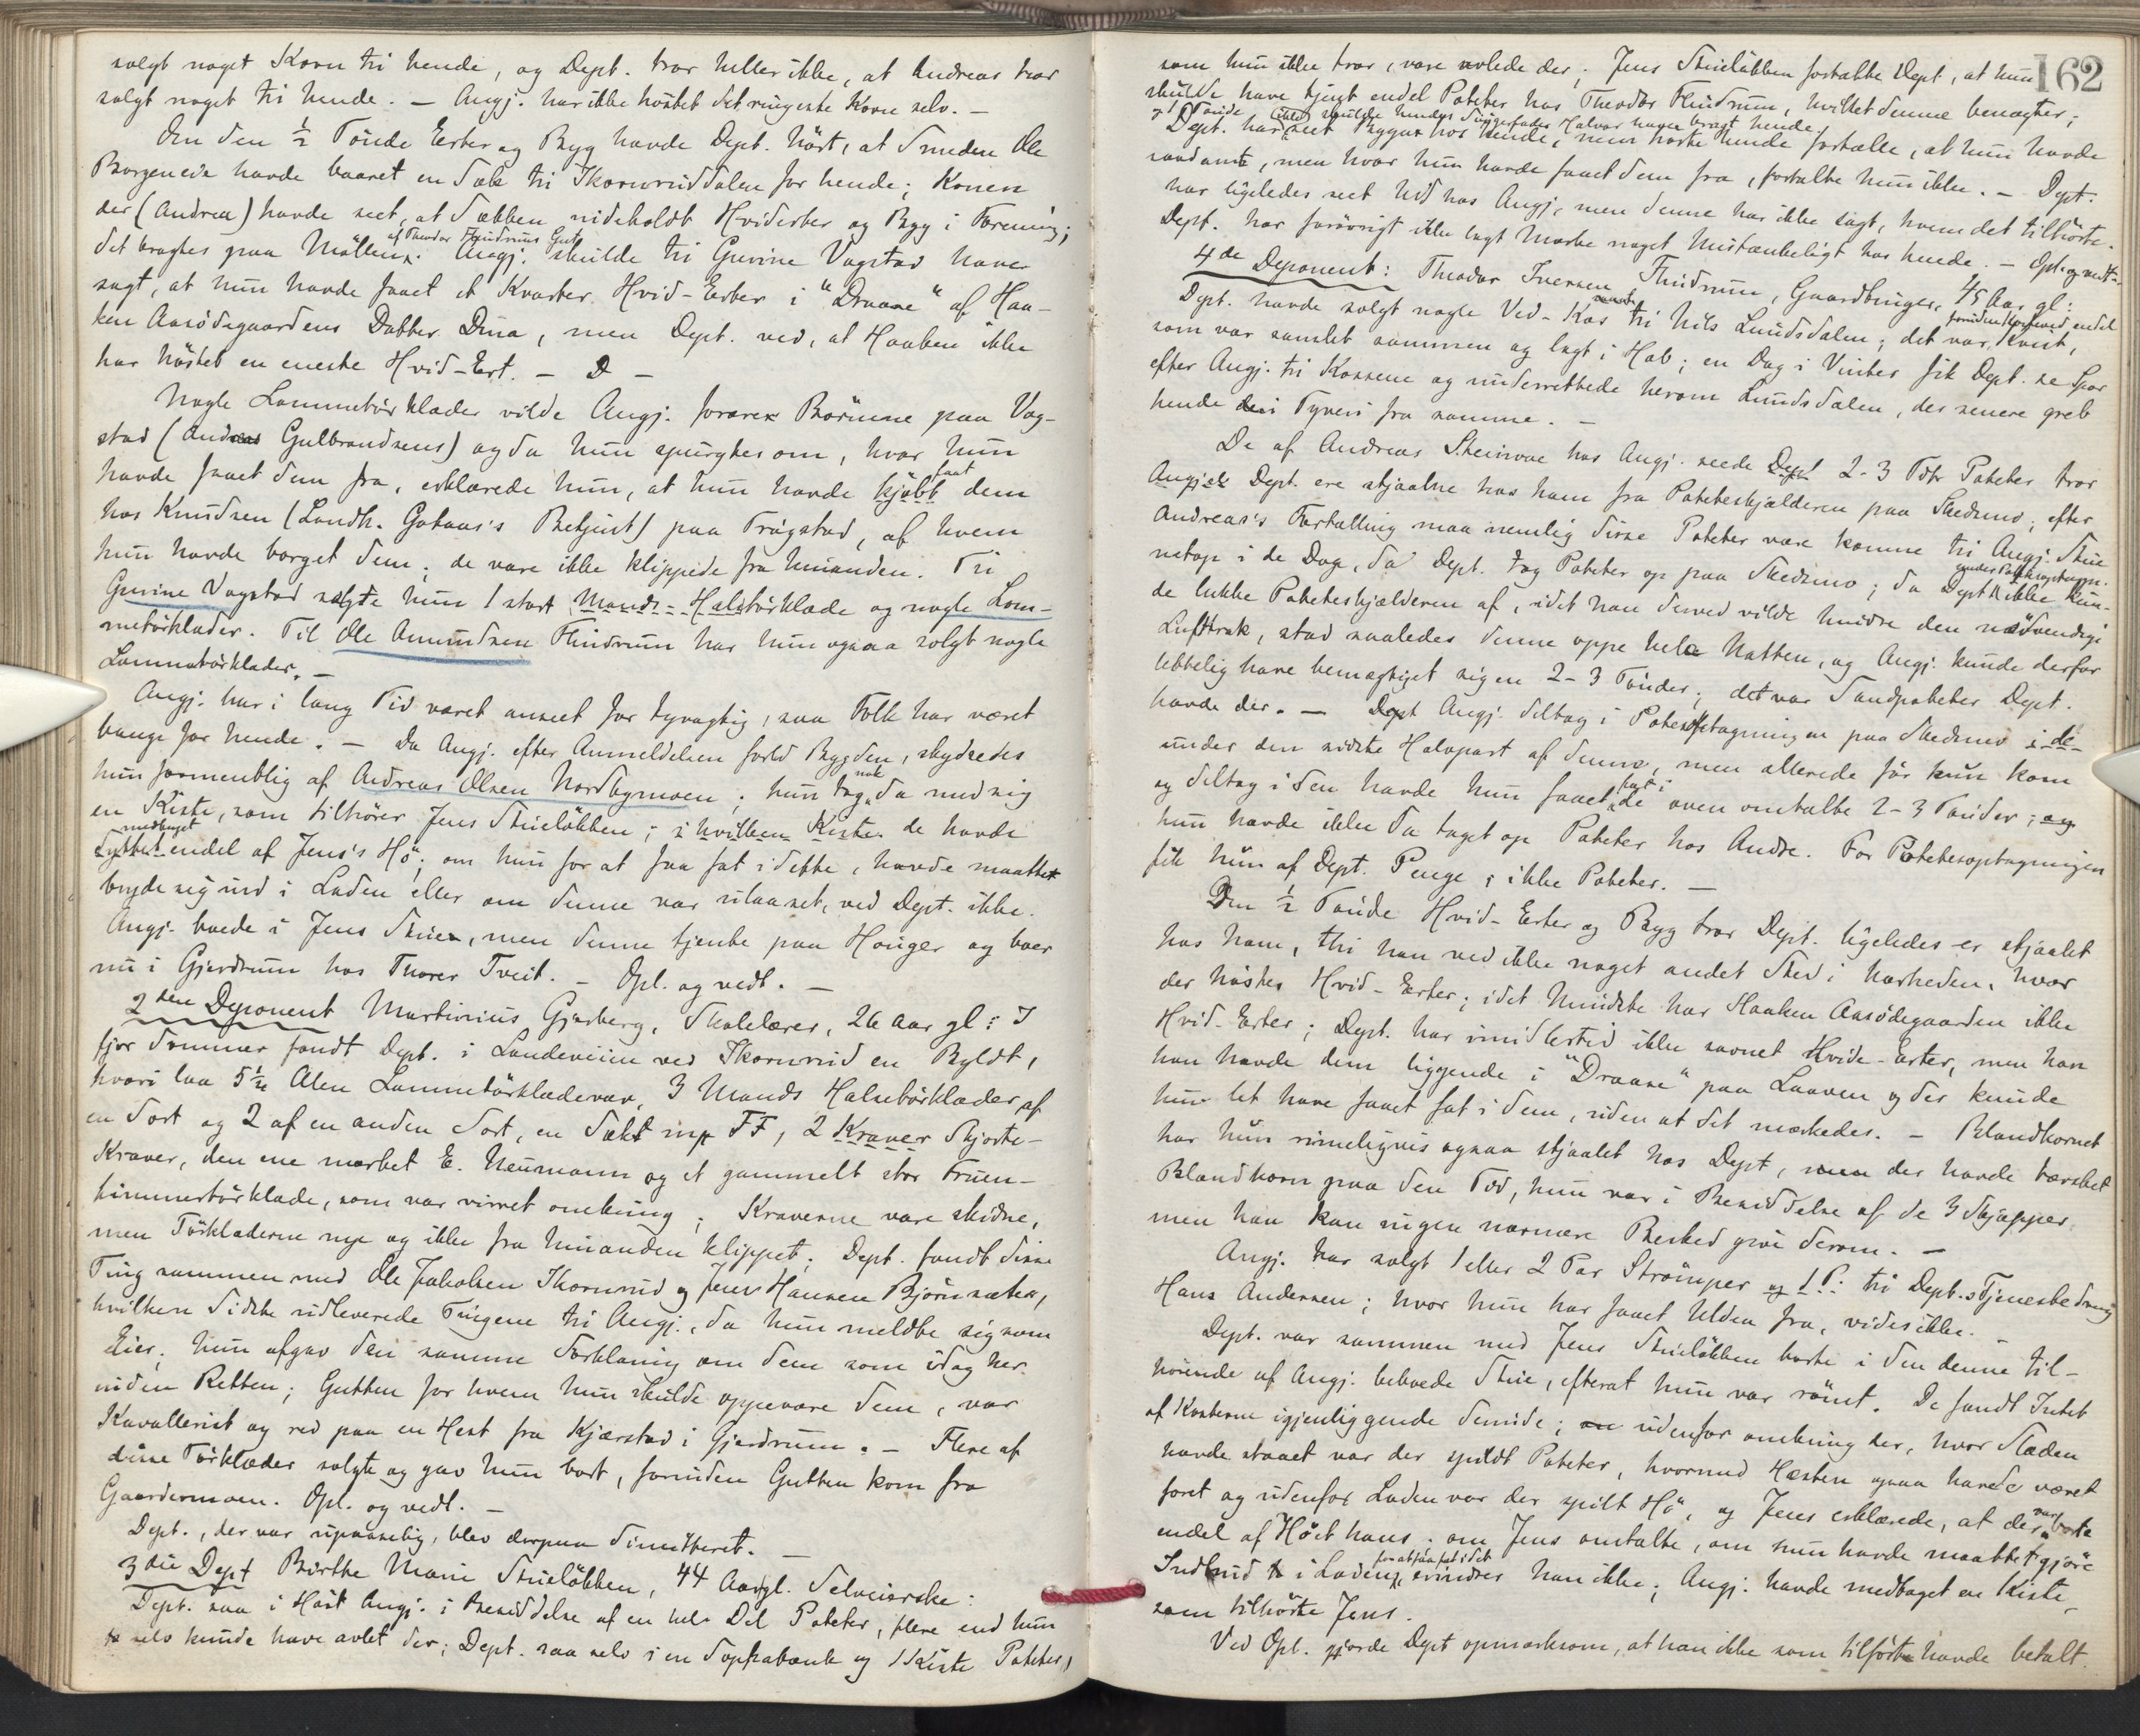 solgt noget Korn til hende, og Dept. tror heller ikke, at Andreas har
solgt noget til hende. — Angj. har ikke höstet det ringeste Korn selv. —
Om den ½ Tönde Erter og Byg havde Dept. hört, at Smeden Ole
Borgeneie havde baaret en Sæk til Skornruddalen for hende; Konen
der (Andrea) havde seet, at Sækken indeholdt Hviderter og Byg i Forening;
af Theodor Flindrums Gut
det bragtes paa Möllen. Angj. skulde til Gurine Vagstad have
sagt, at hun havde faaet et Kvarter Hvid-Erter i "Draase" af Haa-
ken Aasödegaardens Datter Dina, men Dept. ved, at Haaken ikke
har höstet en eneste Hvid-Ert. —
Nogle Lommetörklæder vilde Angj. forære Börnene paa Vag-
stad (Gulbrandsens) og da hun spurgtes om, hvor hun
faat
havde faaet dem fra, erklærede hun, at hun havde kjöbt dem
hos Knudsen (Landh. Gotaas's Betjent) paa Trögstad, af hvem
hun havde borget dem; de vare ikke klippede fra hinanden. Til
Gurine Vagstad solgte hun 1 stort Mands-Halstörklæde og nogle Lom-
metörklæder. Til Ole Amundsen Flindrum har hun ogsaa solgt nogle
Lommetörklæder. —
Angj. har i lang Tid været anseet for tyvagtig, saa Folk har været
bange for hende. — Da Angj. efter Anmeldelsen forlod Bygden, skydsedes
nok
hun formentlig af Andreas Olsen Nordbymoen; hun tog da med sig
en Kiste, som tilhörer Jens Stuelökken; i hvilken Kiste de havde
medtaget
endel af Jens's Hö; om hun for at faa fat i dette, havde maattet
bryde sig ind i Laden eller om denne var ulaaset, ved Dept. ikke.
Angj. boede i Jens Stue, men denne tjente paa Hauger og boer
nu i Gjerdrum hos Thorer Tveit. — Opl. og vedt. —
2den Deponent Martinius Gjerberg, Skolelærer, 26 Aar gl: I
fjor Sommer fandt Dept. i Landeveien ved Skornrud en Byldt,
hvori laa 5½ Alen Lommetörklædevær, 3 Mands Halstörklæder af
en Sort og 2 af en anden Sort, en Sæk mp FF, 2 Kraver Skjorte-
Kraver, den ene mærket E. Neumann og et gammelt stor Fruen-
timmertörklæde, som var virret omkring; Kraverne vare skidne,
men Törklæderne nye og ikke fra hinanden klippet; Dept. fandt disse
Ting sammen med Ole Jakobsen Skornrud og Jens Hansen Björnsæter,
hvilken Sidste udleverede Tingene til Angj., da hun meldte sig som
Eier; hun afgav den samme Forklaring om dem som idag her
inden Retten; Gutten for hvem hun skulde oppevare dem, var
Kavallerist og red paa en Hest fra Kjærstad i Gjerdrum. — Flere af
disse Törklæder solgte og gav hun bort, forinden Gutten kom fra
Gardermoen. Opl. og vedt. —
Dept., der var upaaselig, blev derpaa dimitteret. —
3die Dept Birthe Marie Stuelökken, 44 Aar gl. Selveierske:
Dept. saa i Höst Angj. i Besiddelse af en hel Del Poteter, flere end hun
selv kunde have avlet der; Dept. saa selv i en Sopkabænk og 1 Kiste Poteter,
162
som hun ikke tror, vare avlede der; Jens Stuelökken fortalte Dept, at hun
skulde have kjöpt endel Poteter hos Theodor Flindrum, hvilket denne benægter;
og 1 Tönde skulde hendes Svigerfader Halvor have bragt hende.
Dept. har ikke seet Bygget hos hende, men hörte hende fortælle, at hun havde
saadant, men hvor hun havde faaet dem fra, fortalte hun ikke. — Dept.
har ligeledes seet Uld hos Angj., men denne har ikke sagt, hvem det tilhörte.
Dept. har forövrigt ikke lagt Mærke noget Mistænkeligt hos hende. — Opl. og vedt.
4de Deponent: Theodor Iversen Flindrum, Gaardbruger, 45 Aar gl:
Dept. havde solgt nogle Ved-Kas til Nils Lundsdalen; det var Kvist,
som var samlet sammen og lagt i Hob; en Dag i Vinter fik Dept. se Spor
efter Angj. til Kassene og underrettede herom Lundsdalen, der senere greb
hende i Tyveri fra samme. —
De af Andreas Steinroe hos Angj. seede 2-3 Tdr Poteter tror
Dept. ere stjaalne hos ham fra Poteteskjælderen paa Skedsmo; efter
Andreas's Fortælling maa nemlig disse Poteter være komne til Angj. Stue
netop i de Dage, da Dept. tog Poteter op paa Skedsmo; da Dept ikke kun-
de lukke Poteteskjælderen af, idet han derved vilde hindre den nödvendige
Lufttræk, stod saaledes denne oppe hele Natten, og Angj. kunde derfor
lettelig have bemægtiget sig en 2-3 Tönder; det var Sandpoteter Dept.
havde der. — Angj. deltog i Potetoptagningen paa Skedsmo
under den sidste Halvpart af denne, men allerede för hun kom
fat i
og deltog i den havde hun faaet de oven omtalte 2-3 Tönder;
hun havde ikke da taget op Poteter hos Andre. For Potetesoptagningen
fik hun af Dept. Penge; ikke Poteter. —
Den ½ Tönde Hvid-Erter og Byg tror Dept. ligeledes er stjaalet
hos ham, thi han ved ikke noget andet Sted i Nærheden, hvor
der höstes Hvid-Erter; idet Mindste har Haaken Aasödegaarden ikke
Hvid-Erter; Dept. har imidlertid ikke savnet Hvide-Erter, men han
han havde dem liggende i "Draase" paa Laaven og der kunde
hun let have faaet fat i dem, uden at det mærkedes. — Blandkornet
har hun rimeligvis ogsaa stjaalet hos Dept, der havde tærsket
Blandkorn paa den Tid, hun var i Besiddelse af de 3 Skjæpper,
men han kan ingen nærmere Besked give derom. —
Angj. har solgt 1 eller 2 Par Strömper til Dept.s Tjenestedreng
Hans Andersen; hvor hun har faaet Ulden fra, vides ikke. —
Dept. var sammen med Jens Stuelökken borte i den denne til-
hörende af Angj. beboede Stue, efterat hun var römt. De fandt Intet
af Kosterne igjenliggende derinde; udenfor omkring der, hvor Slæden
havde staaet var der spildt Poteter, hvormed Hesten ogsaa havde været
foret og udenfor Laden var der spilt Hö, og Jens erklærede, at der var borte
endel af Höet hans; om Jens omtalte, om hun havde maattet gjöre
for at faa fat i det
Indbrud i Laden, erindrer han ikke; Angj. havde medtaget en Kiste,
som tilhörte Jens.
Ved Opl. gjorde Dept opmærksom, at han ikke som tilfört havde betalt.